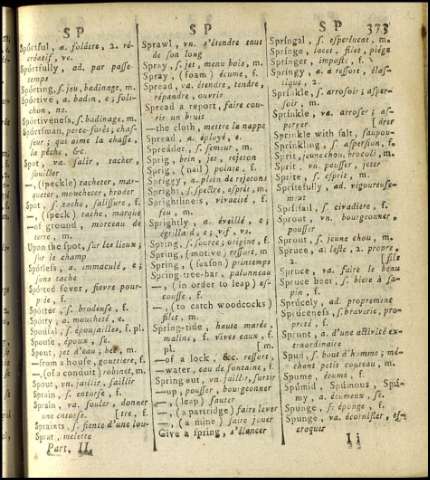 SP
SP
SP
373
Sportful, a. folâtre, 2. ré-
créatif, ve.
Sportfully, ad. par passe-
temps
Sporting, s. jeu, badinage, m.
Sportive, a. badin, e; foli-
chon, ne.
Sportiveness, s. badinage, m.
Sportsman, porte-forêt; chas-
seur; qui aime la chasse,
la pêche, &c.
Spot, va. salir, tacher,
souiller
—, (speckle) racheter, mar-
queter, moucheter, broder
Spot, s. tache, salissure, f.
—, (peck) tache, marque
—of ground, morceau de
terre, m.
Upon the spot, sur les lieux,
sur le champ
Spotless, a. immaculé, e;
sans tache
Spotted fever, fievre pour-
prée, f.
Spotter, s. brodeuse, f.
Spotty, a. moucheté, e.
Spousal, s. épousailles, f. pl.
Spouse, époux, se.
Spout, jet d'eau, bec, m.
—from a house, gouttiere, f.
—, (of a conduit) robinet, m.
Spout, vn. jaillir, saillir
Sprain, s. entorse, f.
Sprain, va. fouler, donner
une entorse. [tre, f.
Spraints, s. fiente d'une lou-
Sprat, melette
Part. II.
Sprawl, vn. s'étendre tout
de son long
Spray, s. jet, menu bois, m.
Spray, (foam) écume, f.
Spread, va. étendre, tendre,
répandre, ouvrir
Spread a report, faire cou-
rir un bruit
—the cloth, mettre la nappe
Spread, a. éployé, e.
Spreader, s. semeur, m.
Sprig, brin, jet, rejeton
Sprig, (nail) pointe, f.
Spriggy, a. plein de rejetons
Spright, s. spectre, esprit, m.
Sprightliness, vivacité, f.
feu, m.
Sprightly, a. éveillé, e;
égrillard, e; vif, ve.
Spring, s. source; origine, f.
Spring, (motive) ressort, m
Spring, (season) printemps
Spring-tree-bar, palonneau
—, (in order to leap) es-
cousse, f.
—, (to catch woodcocks)
filet, m.
Spring-tide, haute marée
maline, f. vives eaux, f.
pl. [m.
—of a lock, &c. ressort,
—water, eau de fontaine, f.
Spring out, vn. jaillir, sortir
—up, pousser, bourgeonner
—, (leap) sauter
—, (a partridge) faire lever
—, (a mine) faire jouer
Give a spring, s'élancer
Springal, s. esperluete, m.
Springe, lacet, filet, piége
Springer, imposte, f.
Springy, a. à ressort, élas-
tique, 2.
Sprinkle, s. arrosoir; asper-
soir, m.
Sprinkle, va. arroser; as-
perger [drer
Sprinkle with salt, saupou-
Sprinkling, s. aspersion, f.
Sprit, jeune chou, brocoli, m.
Sprit, vn. pousser, jeter
Sprite, s. esprit, m.
Spritefully, ad. vigoureuse-
ment
Spritsail, s. civadiere, f.
Sprout, vn. bourgeonner,
pousser
Sprout, s. jeune chou, m.
Spruce, a. leste, 2. propre,
[file
Spruce, va. faire le beau
Spruce beer, s. biere à sa-
pin, f.
Sprucely, ad. proprement
Spruceness, s. braverie, pro-
preté, f.
Sprunt, a. d'une activité ex-
traordinaire
Spud, s. bout d'homme; mé-
chant petit couteau, m.
Spume, écume, f.
Spumid, Spumous, Spu-
my, a. écumeux, se.
Spunge, s. éponge, f.
Spunge, va. écornifler, es-
croquer
Ii